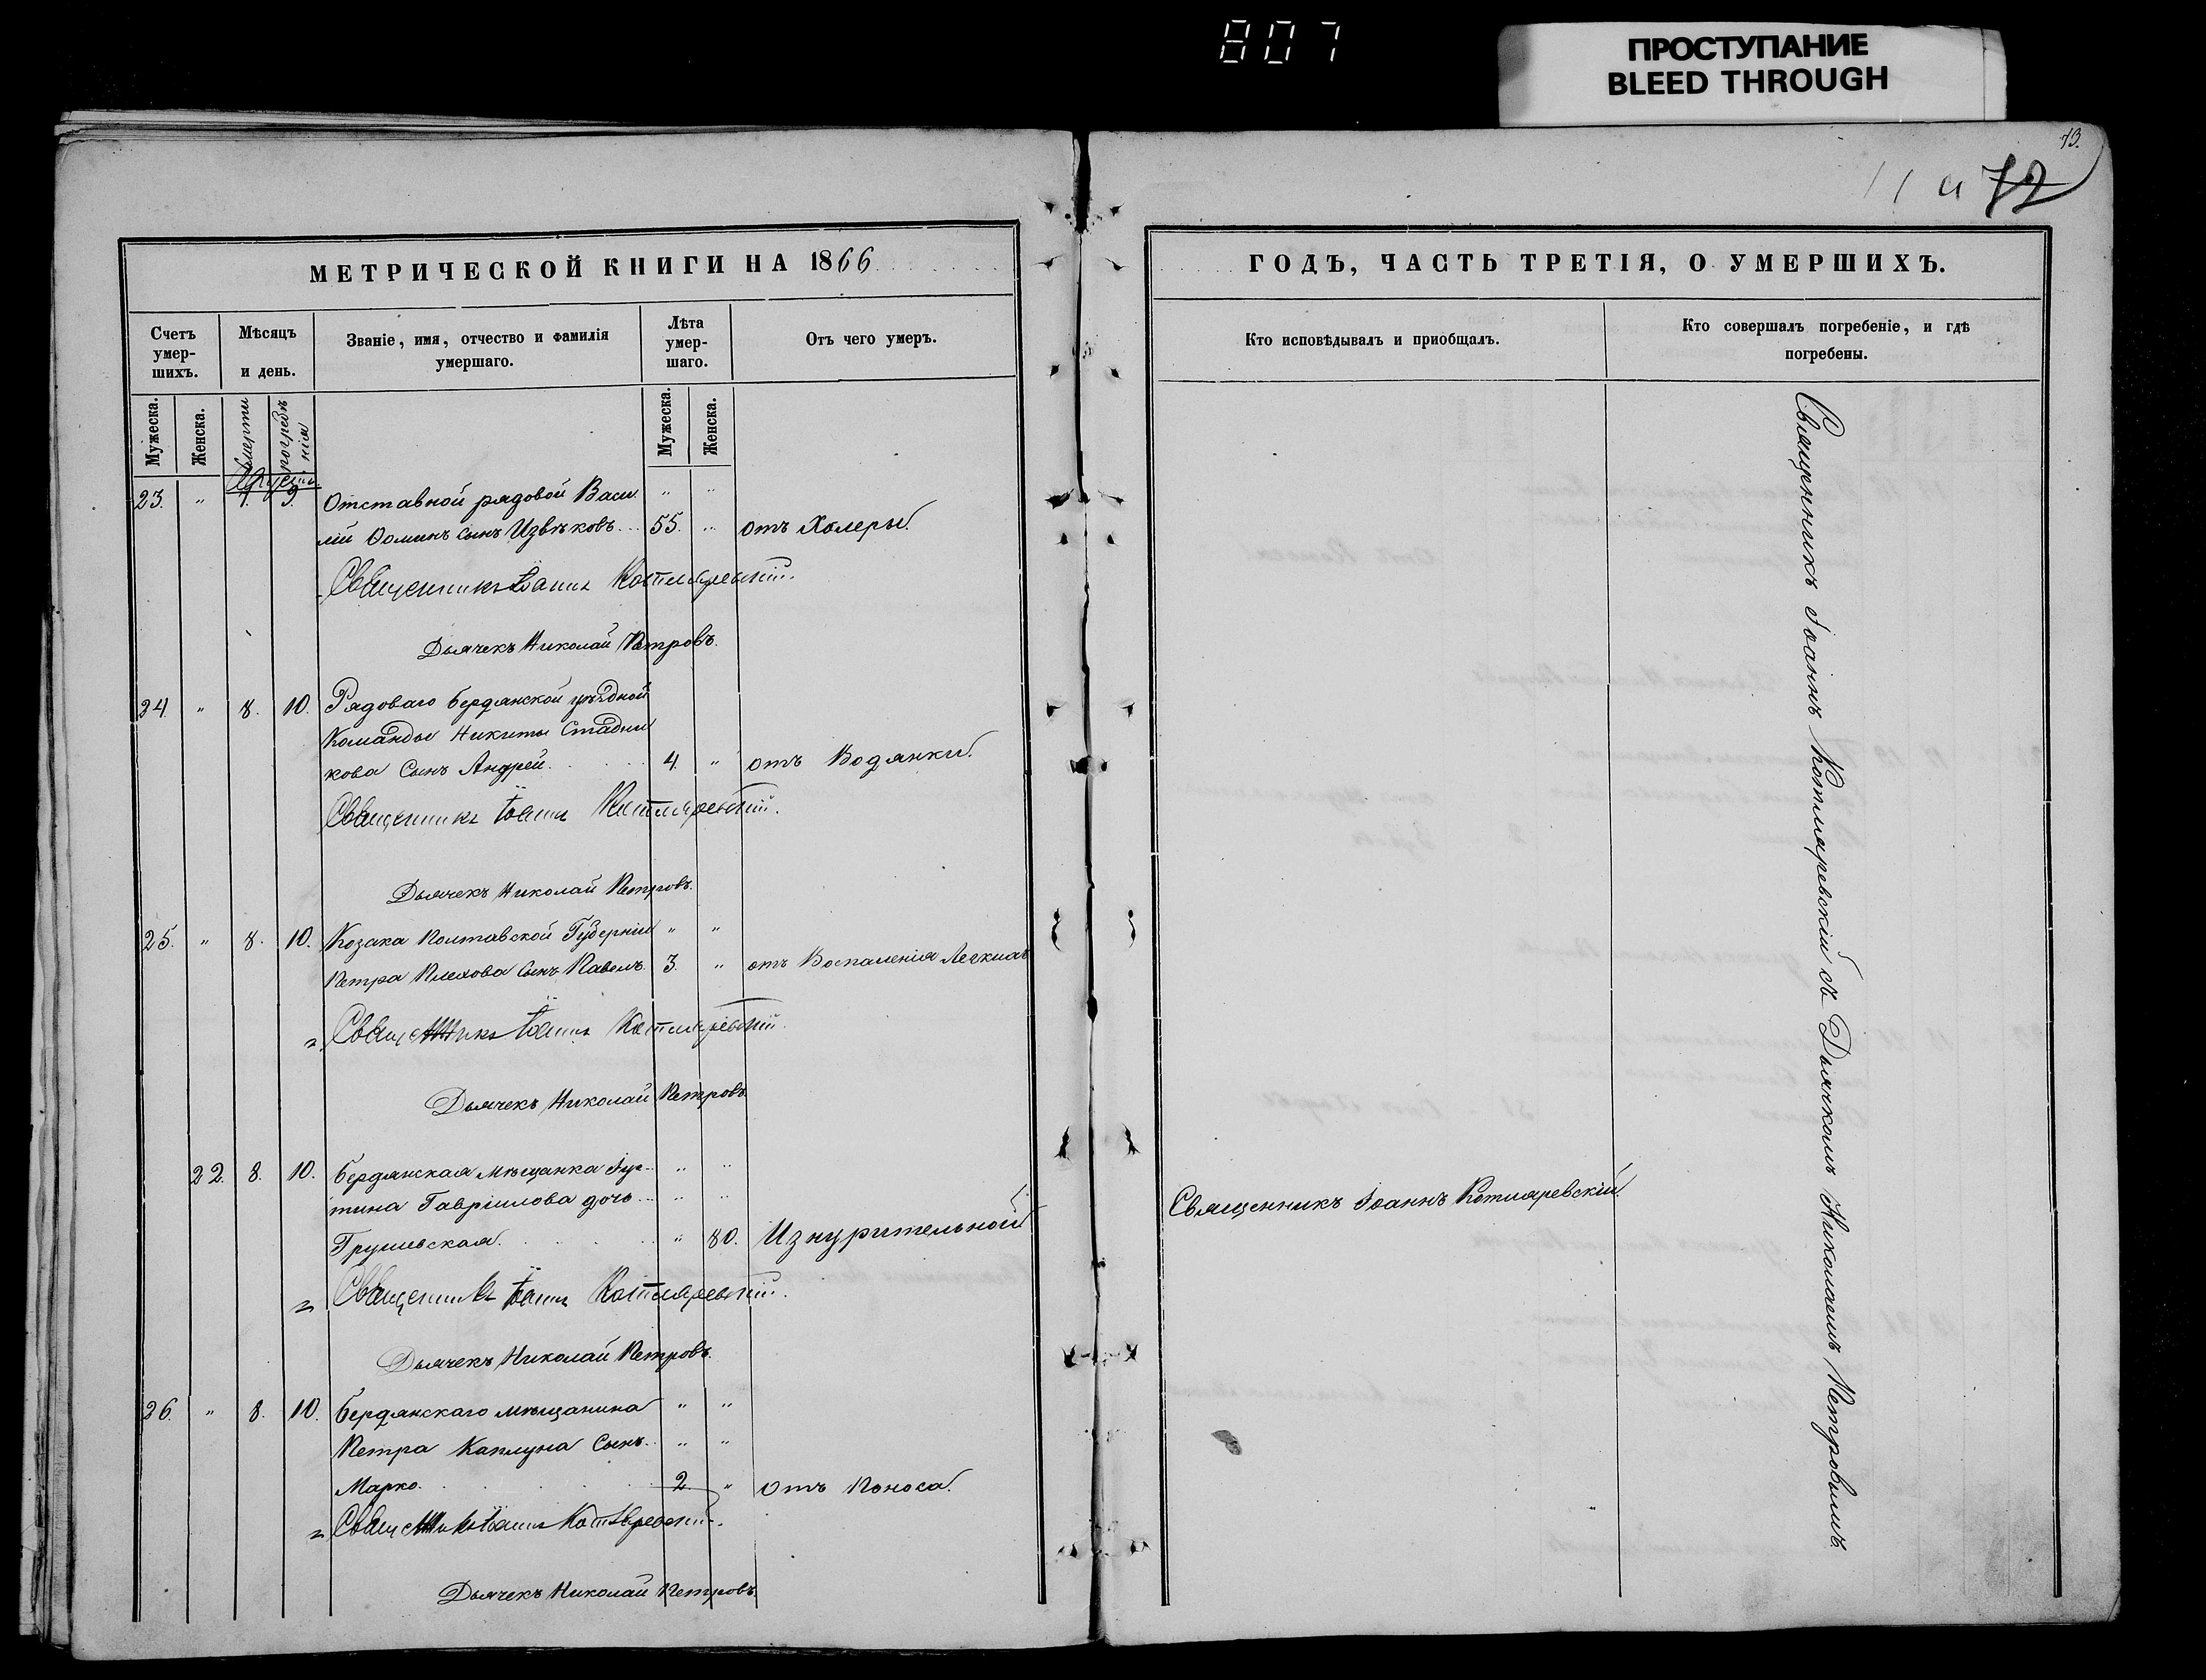 807
ПРОСТУПАНИЕ
BLEED THROUGH
73.
72
МЕТРИЧЕСКОЙ КНИГИ НА 1866
Счетъ умер-шихъ.
Мѣсяцъ и день.
Званіе, имя, отчество и фамилія умершаго.
Лѣта умер-шаго.
Отъ чего умеръ.
Мужеска.
Женска.
смерти
погребенія
Мужеска.
Женска.
23. " 7. 9. Отставной рядовой Васи " "
лій Ѳоминъ сынъ Извѣковъ 55. " отъ Холеры.
Священникъ Іоаннъ Котляревскій.
Дьячекъ Николай Петровъ.
24 " 8. 10. Рядоваго Бердянской уѣздной
Команды Никиты Стадни
кова Сынъ Андрей 4. " отъ Водянки.
Священникъ Іоаннъ Котляревскій.
Дьячекъ Николай Петровъ.
25. " 8. 10. Козака Полтавской Губерніи " "
Петра Плехова Сынъ Павелъ 3. " отъ Воспаленія Легкихъ
Священникъ Іоаннъ Котляревскій.
Дьячекъ Николай Петровъ
22. 8. 10. Бердянская мѣщанка Іус- " "
тина Гавріилова дочь " "
Грушевская. " 80. Изнурительной
Священникъ Іоаннъ Котляревскій.
Дьячекъ Николай Петровъ.
26. " 8. 10. Бердянскаго мѣщанина " "
Петра Каплуна Сынъ " "
Марко. 2 " Отъ Поноса.
Священникъ Іоаннъ Котляревскій.
Дьячекъ Николай Петровъ
ГОДЪ, ЧАСТЬ ТРЕТІЯ, О УМЕРШИХЪ.
Кто исповѣдывалъ и пріобщалъ.
Кто совершалъ погребеніе, и гдѣ
погребены.
Священникъ Іоаннъ Котляревскій.
Священникъ Іоаннъ Котляревскій съ Дьячкомъ Николаемъ Петровымъ